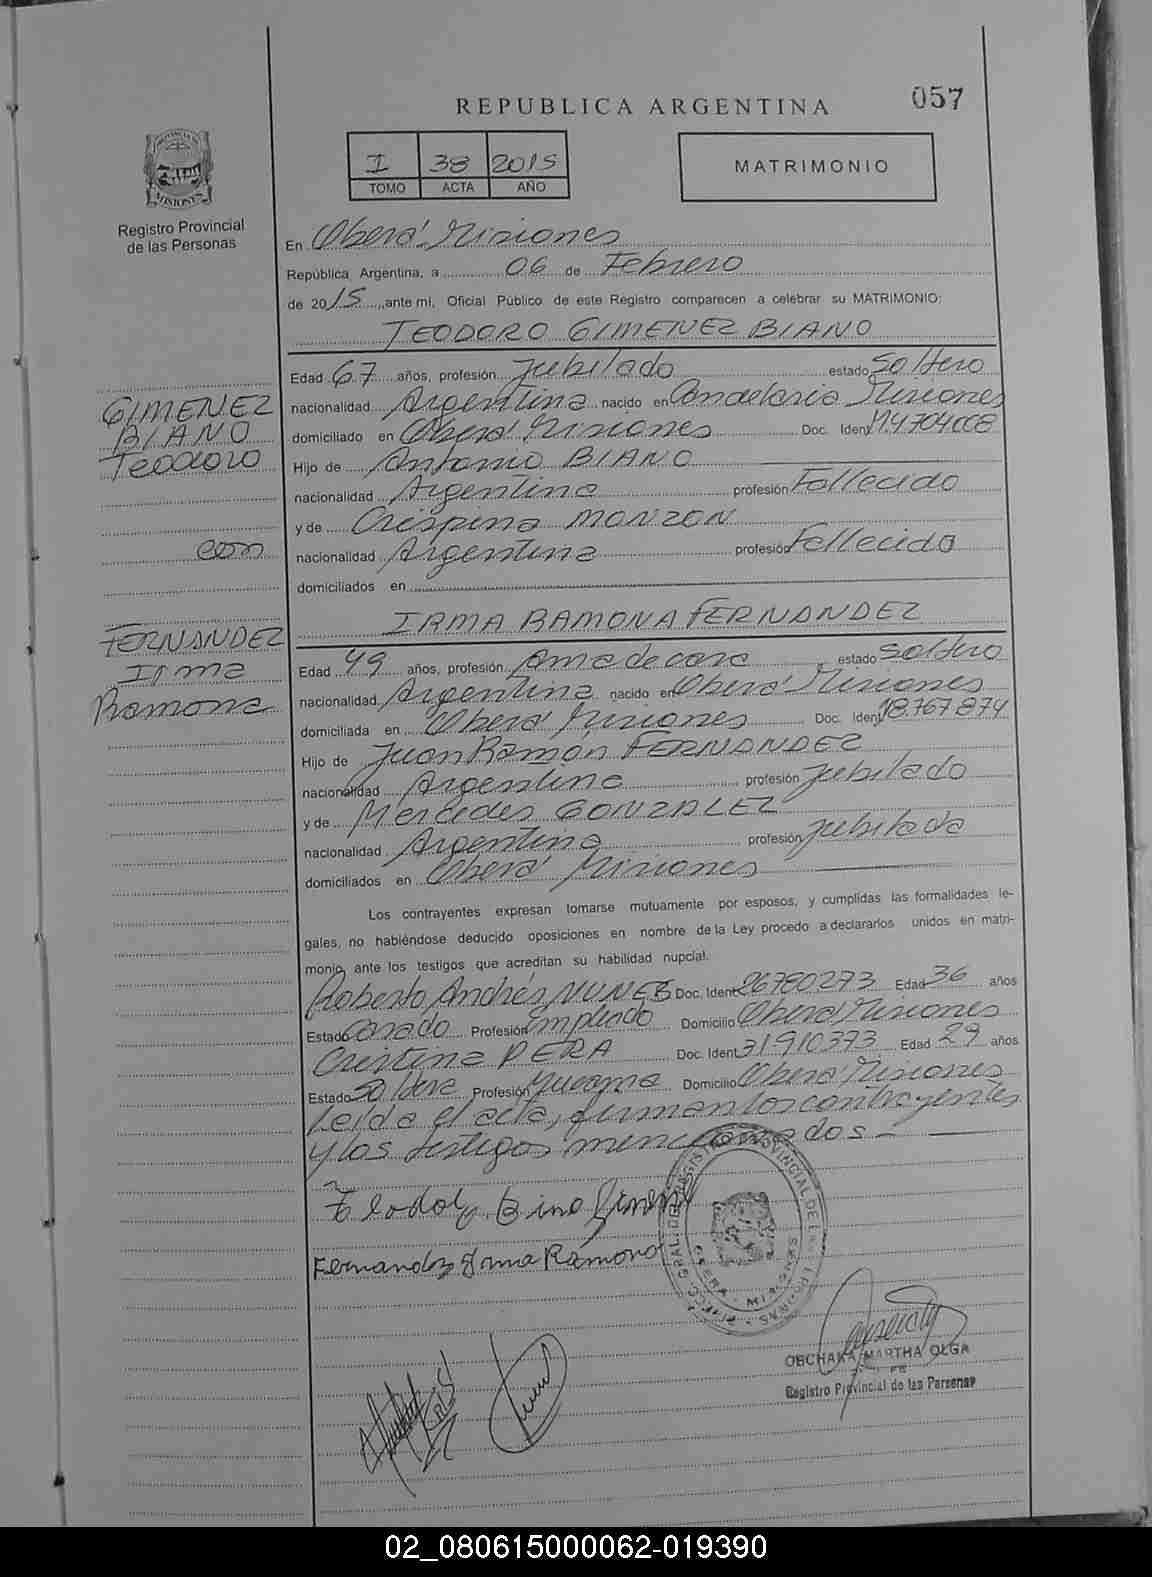 057
REPUBLICA ARGENTINA
I 38 2015
TOMO ACTA AÑO
MATRIMONIO
PROVINCIA DE
MISIONES
Registro Provincial
de las Personas
En Oberá Misiones
República Argentina, a 06 de Febrero
de 2015, ante mi, Oficial Público de este Registro comparecen a celebrar su MATRIMONIO:
TEODORO GIMENEZ BIANO
Edad 67 años, profesión Jubilado estado soltero
nacionalidad Argentina nacido en Candelaria Misiones
domiciliado en Oberá Misiones Doc. Ident M4704008
Hijo de Antonio BIANO
nacionalidad Argentina profesión Fallecido
y de Crispina MONZON
nacionalidad Argentina profesión Fallecido
domiciliados en
GIMENEZ
BIANO
Teodoro
con
FERNANDEZ
Irma
Ramona
IRMA RAMONA FERNANDEZ
Edad 49 años, profesión Ama de casa estado soltero
nacionalidad Argentina nacido en Oberá Misiones
domiciliada en Oberá Misiones Doc. Ident 18.767.874
Hijo de Juan Ramón FERNANDEZ
nacionalidad Argentina profesión Jubilado
y de Mercedes GONZALEZ
nacionalidad Argentina profesión Jubilada
domiciliados en Oberá Misiones
Los contrayentes expresan tomarse mutuamente por esposos, y cumplidas las formalidades le-
gales, no habiéndose deducido oposiciones en nombre de la Ley procedo a declararlos unidos en matri-
monio, ante los testigos que acreditan su habilidad nupcial.
Roberto Andrés NUNES Doc. Ident 26780273 Edad 36 años
Estado Casado Profesión Empleado Domicilio Oberá Misiones
Cristina PERA Doc. Ident 31.910373 Edad 29 años
Estado Soltera Profesión Domicilio Oberá Misiones
Leída el acta, firman los contrayentes
y los testigos mencionados -
Fernandez Irma Ramona
OBCHARA MARTHA OLGA
Registro Provincial de las Personas
02_080615000062-019390